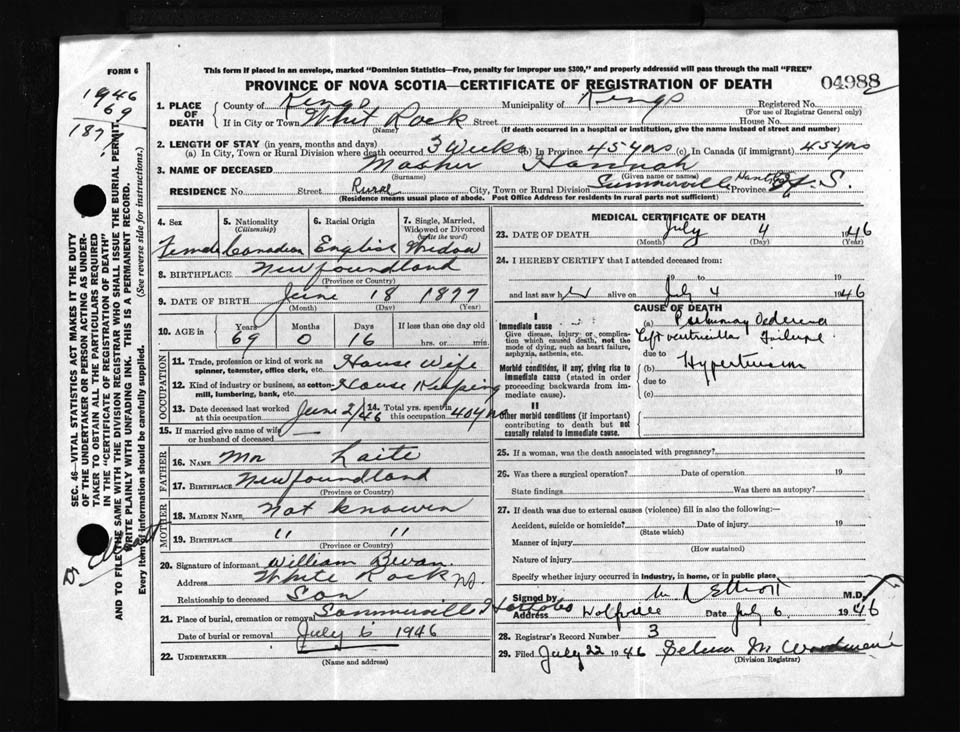 FORM 6
This form if placed in an envelope, marked "Dominion Statistics—Free, penalty for improper use $300," and properly addressed will pass through the mail "FREE"
PROVINCE OF NOVA SCOTIA—CERTIFICATE OF REGISTRATION OF DEATH
04988
1946
69
187
1. PLACE OF DEATH
County of Kings Municipality of Kings Registered No.
(For use of Registrar General only)
If in City or Town Whit Rock Street House No.
(Name) (If death occurred in a hospital or institution, give the name instead of street and number)
2. LENGTH OF STAY (in years, months and days)
(a) In City, Town or Rural Division where death occurred 3 Weeks (b) In Province 45 yrs (c) In Canada (if immigrant) 45 yrs
3. NAME OF DECEASED Hannah
(Surname) (Given name or names)
RESIDENCE No. Street Rural City, Town or Rural Division Summerville Hants Province N.S.
(Residence means usual place of abode. Post Office Address for residents in rural parts not sufficient)
4. Sex Female
5. Nationality (Citizenship) Canadian
6. Racial Origin English
7. Single, Married, Widowed or Divorced (write the word) Widow
8. BIRTHPLACE Newfoundland
(Province or Country)
9. DATE OF BIRTH June 18 1877
(Month) (Day) (Year)
10. AGE in Years Months Days If less than one day old
69 0 16 hrs. or min.
OCCUPATION
11. Trade, profession or kind of work as spinner, teamster, office clerk, etc. House Wife
12. Kind of industry or business, as cotton-mill, lumbering, bank, etc. House Keeping
13. Date deceased last worked at this occupation June 2/46 14. Total yrs. spent in this occupation 40 yrs
15. If married give name of wife or husband of deceased —
FATHER
16. NAME Mr Laite
17. BIRTHPLACE Newfoundland
(Province or Country)
MOTHER
18. MAIDEN NAME Not knowen
19. BIRTHPLACE " "
(Province or Country)
20. Signature of informant William Bevan
Address White Rock NS.
Relationship to deceased Son
21. Place of burial, cremation or removal
Date of burial or removal July 6 1946
22. UNDERTAKER
(Name and address)
MEDICAL CERTIFICATE OF DEATH
23. DATE OF DEATH July 4 1946
(Month) (Day) (Year)
24. I HEREBY CERTIFY that I attended deceased from:
19 to 19
and last saw her alive on July 4 1946
CAUSE OF DEATH
I
Immediate cause
Give disease, injury or complication which caused death, not the mode of dying, such as heart failure, asphyxia, asthenia, etc.
(a) Pulmonary Oedema
Left ventricular Failure
due to
Morbid conditions, if any, giving rise to immediate cause (stated in order proceeding backwards from immediate cause).
(b) Hypertension
due to
(c)
II
Other morbid conditions (if important) contributing to death but not causally related to immediate cause.
25. If a woman, was the death associated with pregnancy?
26. Was there a surgical operation? Date of operation 19
State findings Was there an autopsy?
27. If death was due to external causes (violence) fill in also the following:—
Accident, suicide or homicide? Date of injury 19
(State which)
Manner of injury
(How sustained)
Nature of injury
Specify whether injury occurred in industry, in home, or in public place
Signed by Elliott M.D.
Address Wolfville Date July 6 1946
28. Registrar's Record Number 3
29. Filed July 22 1946 Selma M
(Division Registrar)
SEC. 46—VITAL STATISTICS ACT MAKES IT THE DUTY
OF THE UNDERTAKER OR PERSON ACTING AS UNDER-
TAKER TO OBTAIN ALL THE PARTICULARS REQUIRED
IN THE "CERTIFICATE OF REGISTRATION OF DEATH"
AND TO FILE THE SAME WITH THE DIVISION REGISTRAR WHO SHALL ISSUE THE BURIAL PERMIT.
WRITE PLAINLY WITH UNFADING INK. THIS IS A PERMANENT RECORD.
Every item of information should be carefully supplied. (See reverse side for instructions.)